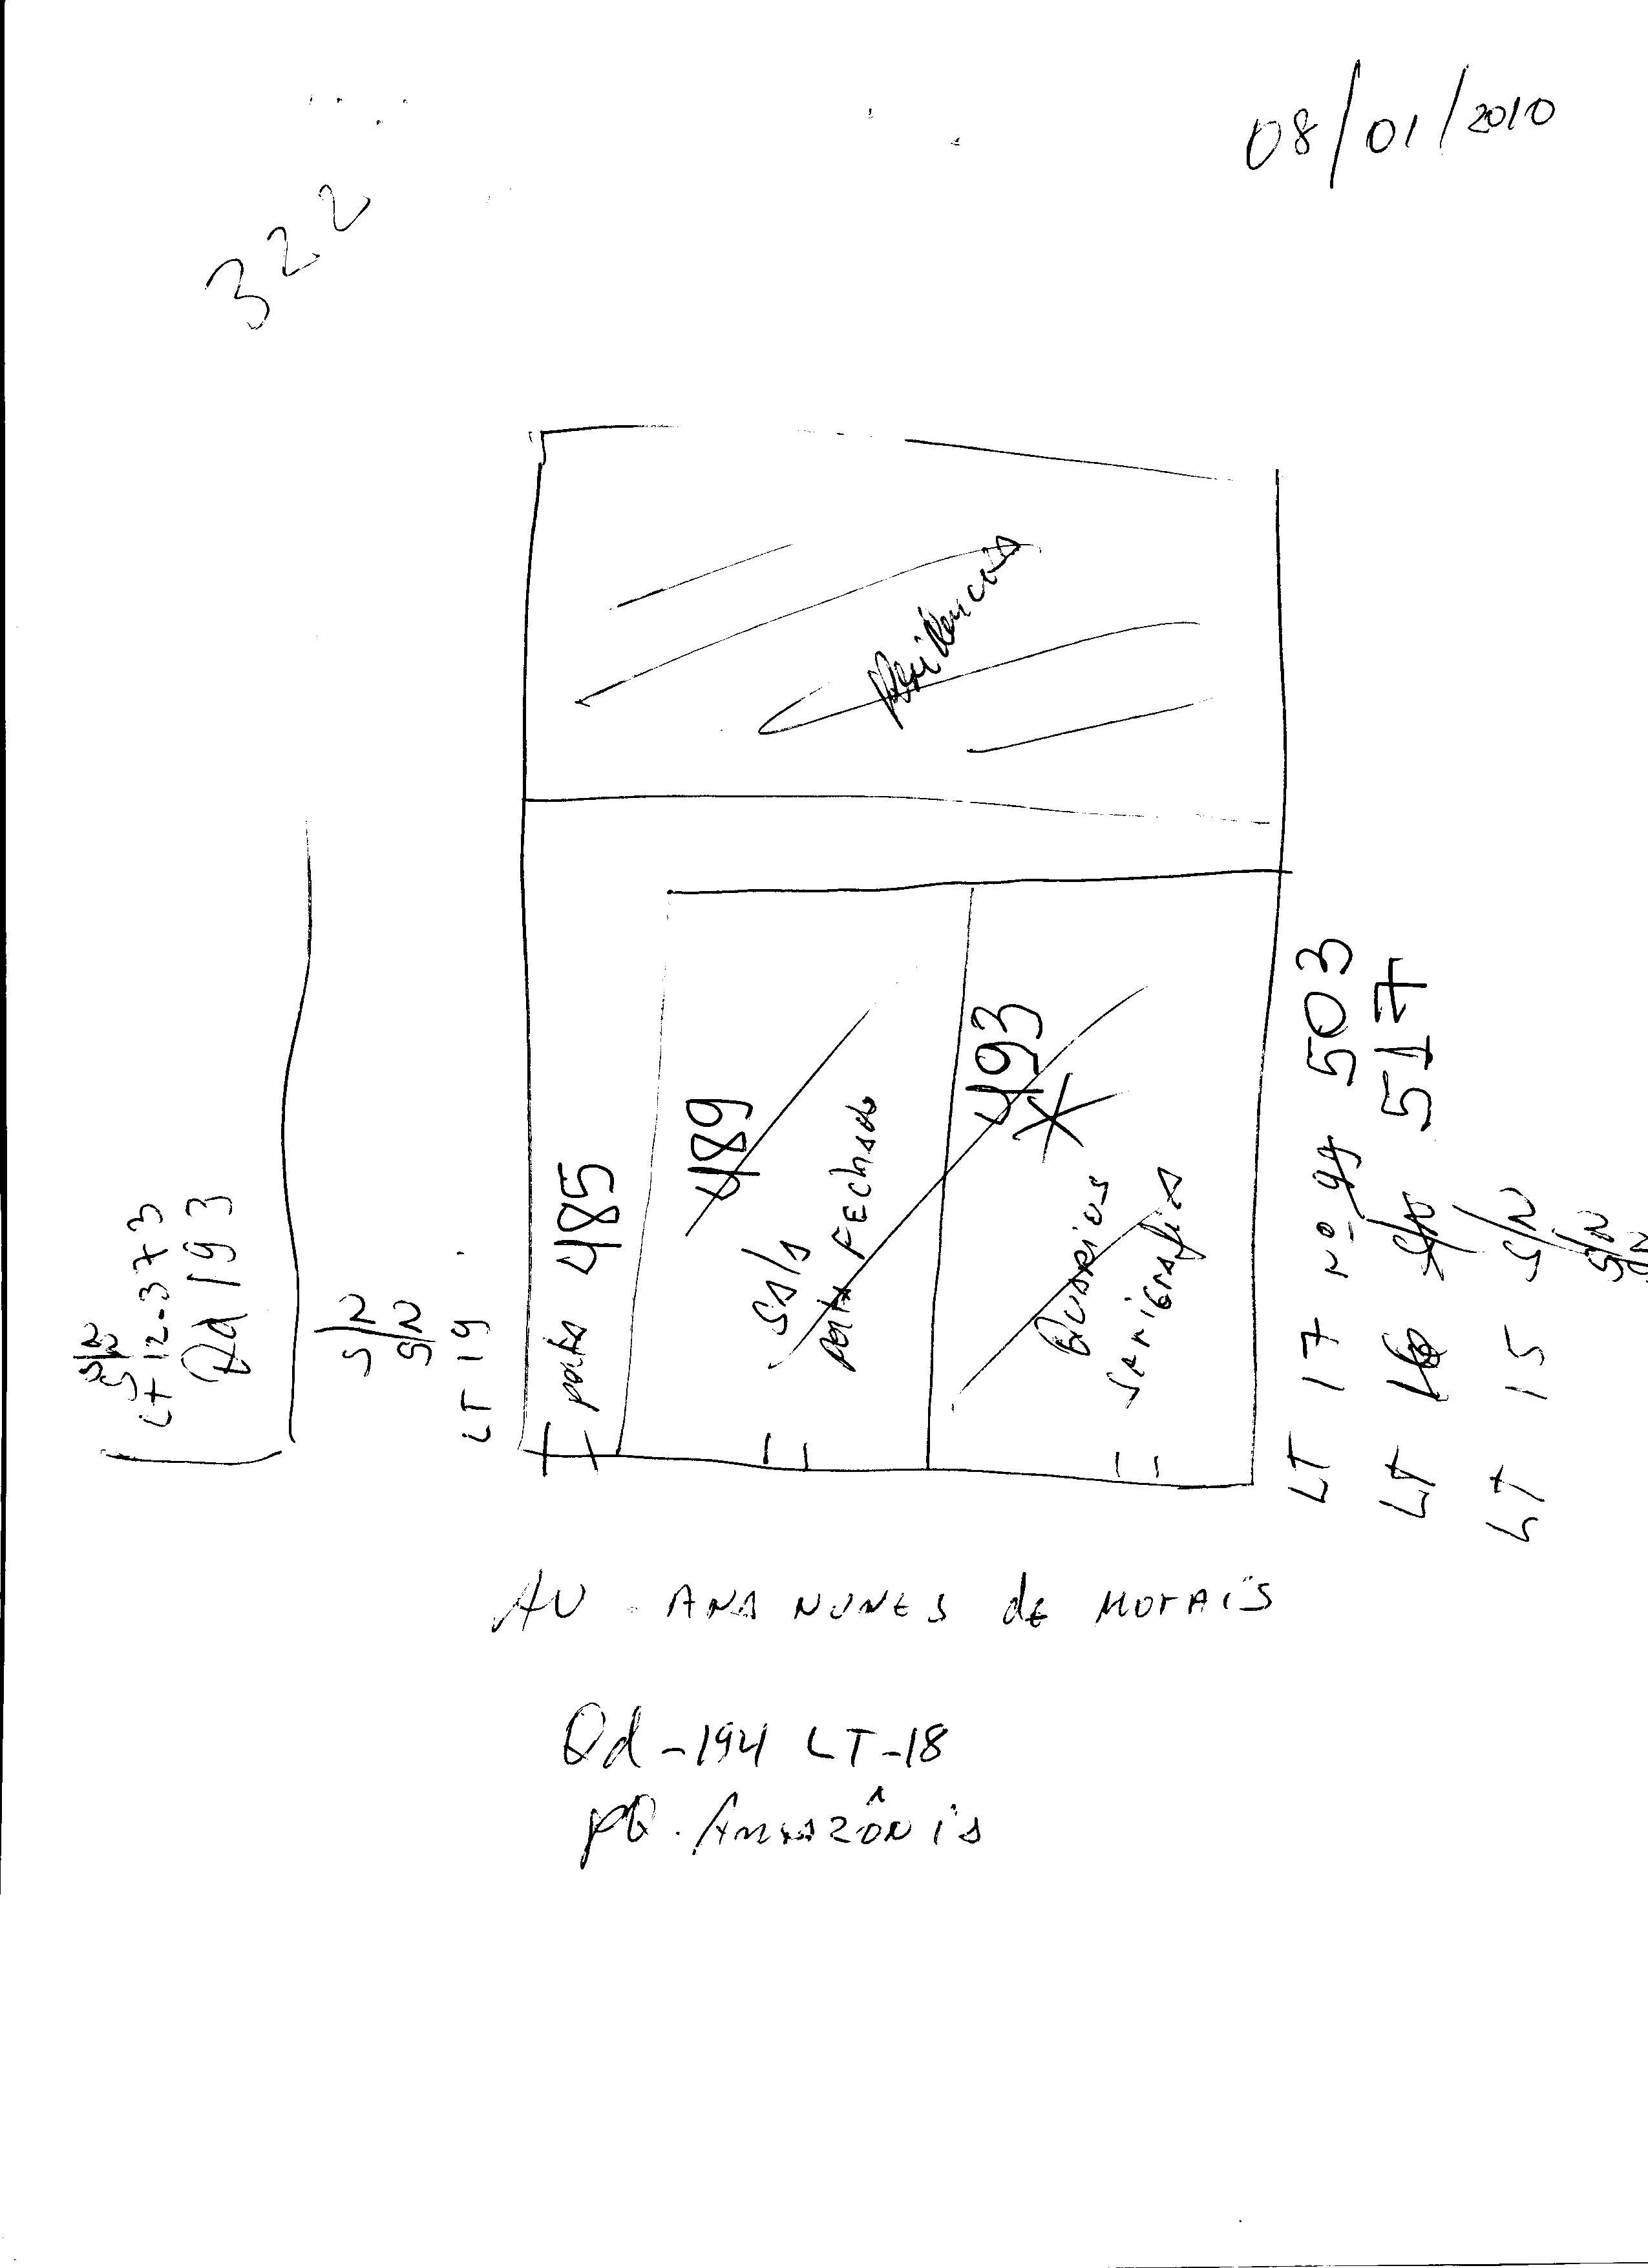 08/01/2010
322
Residencias
S/N
S/N
LT 12-373
Qd 193
S/N
S/N
LT 19
porta 485
489
Sala
porta FEchado
493
*
SErigrafia
LT 17 Nº 503
LT 16 S/N 517
LT 15 S/N
S/N
AV - ANA NUNES dE MORAIS
Qd - 194 LT - 18
PQ. AmAzôNiA